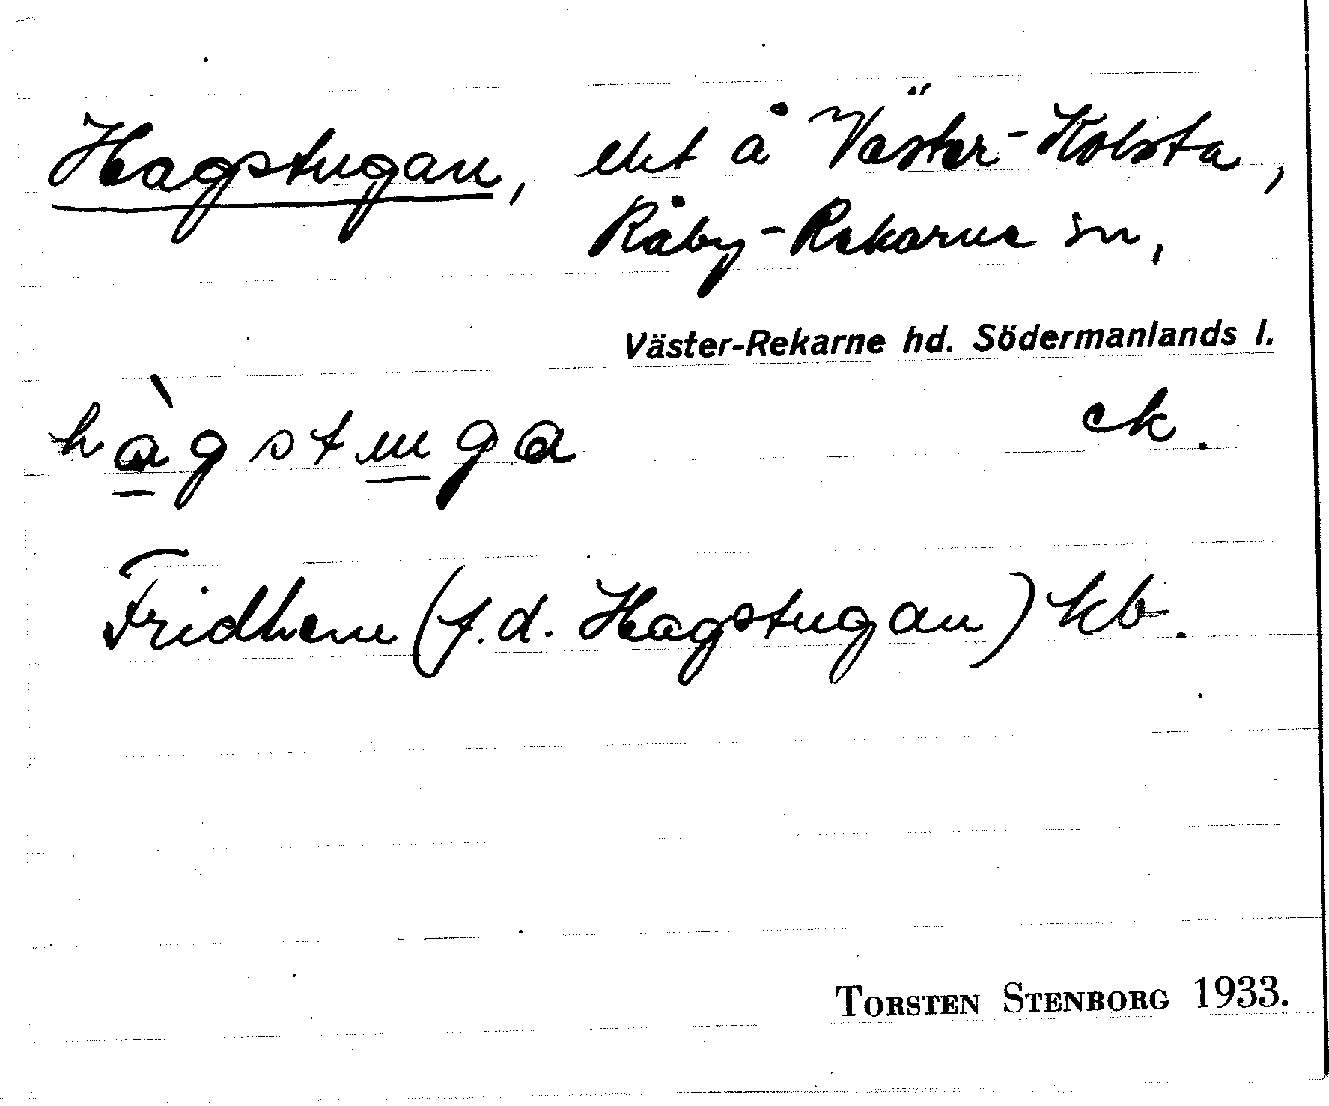 Hagstugan, ebt å Väster-Kolsta,
Råby-Rekarne sn,
Väster-Rekarne hd. Södermanlands l.
hàgstuga ck.
Fridhem (f.d. Hagstugan) kb.
TORSTEN STENBORG 1933.